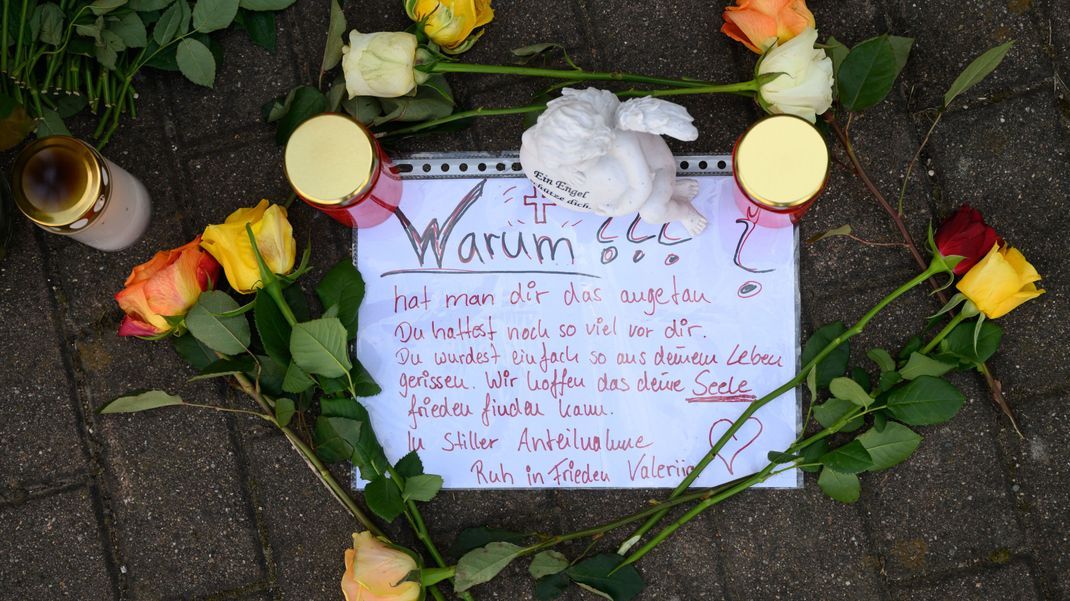 Ein Engel
schütze dich.
Warum !!! ?
hat man dir das angetan
Du hattest noch so viel vor dir.
Du wurdest einfach so aus deinem Leben
gerissen. Wir hoffen das deine Seele
frieden finden kann.
In Stiller Anteilnahme
Ruh in Frieden Valeriia